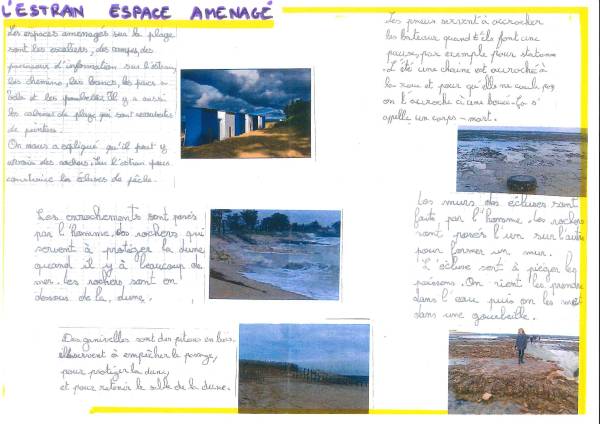 L'ESTRAN ESPACE AMENAGÉ
Les espaces amenagés sur la plage
sont les escaliers, des rampes, des
panneaux d'information sur l'estran,
les chemins, les bancs, les parcs à
vélo et les poubelles. Il y a aussi
les cabines de plage qui sont recouvertes
de peinture.
On nous a expliqué qu'il peut y
avoir des rochers sur l'estran pour
construire les écluses de pêche.
Les enrochements sont posés
par l'homme. Des rochers qui
servent à protéger la dune
quand il y a beaucoup de
mer. Les rochers sont en
dessous de la dune.
Des ganivelles sont des piteaux en bois.
servent à empêcher le passage,
pour protéger la dune,
et pour retenir le sable de la dune.
Les pneus servent à accrocher
les bateaux quand ils font une
pause, par exemple pour stationner
L'été une chaine est accroché à
la roue et pour qu'elle ne coule pas
on l'accroche à une bouée. Ça s'
appelle un corps-mort.
Les murs des écluses sont
faite par l'homme. Les rochers
sont posés l'un sur l'autre
pour former un mur.
L'écluse sert à piéger les
poissons. On vient les prendre
dans l'eau puis on les met
dans une gourbeille.